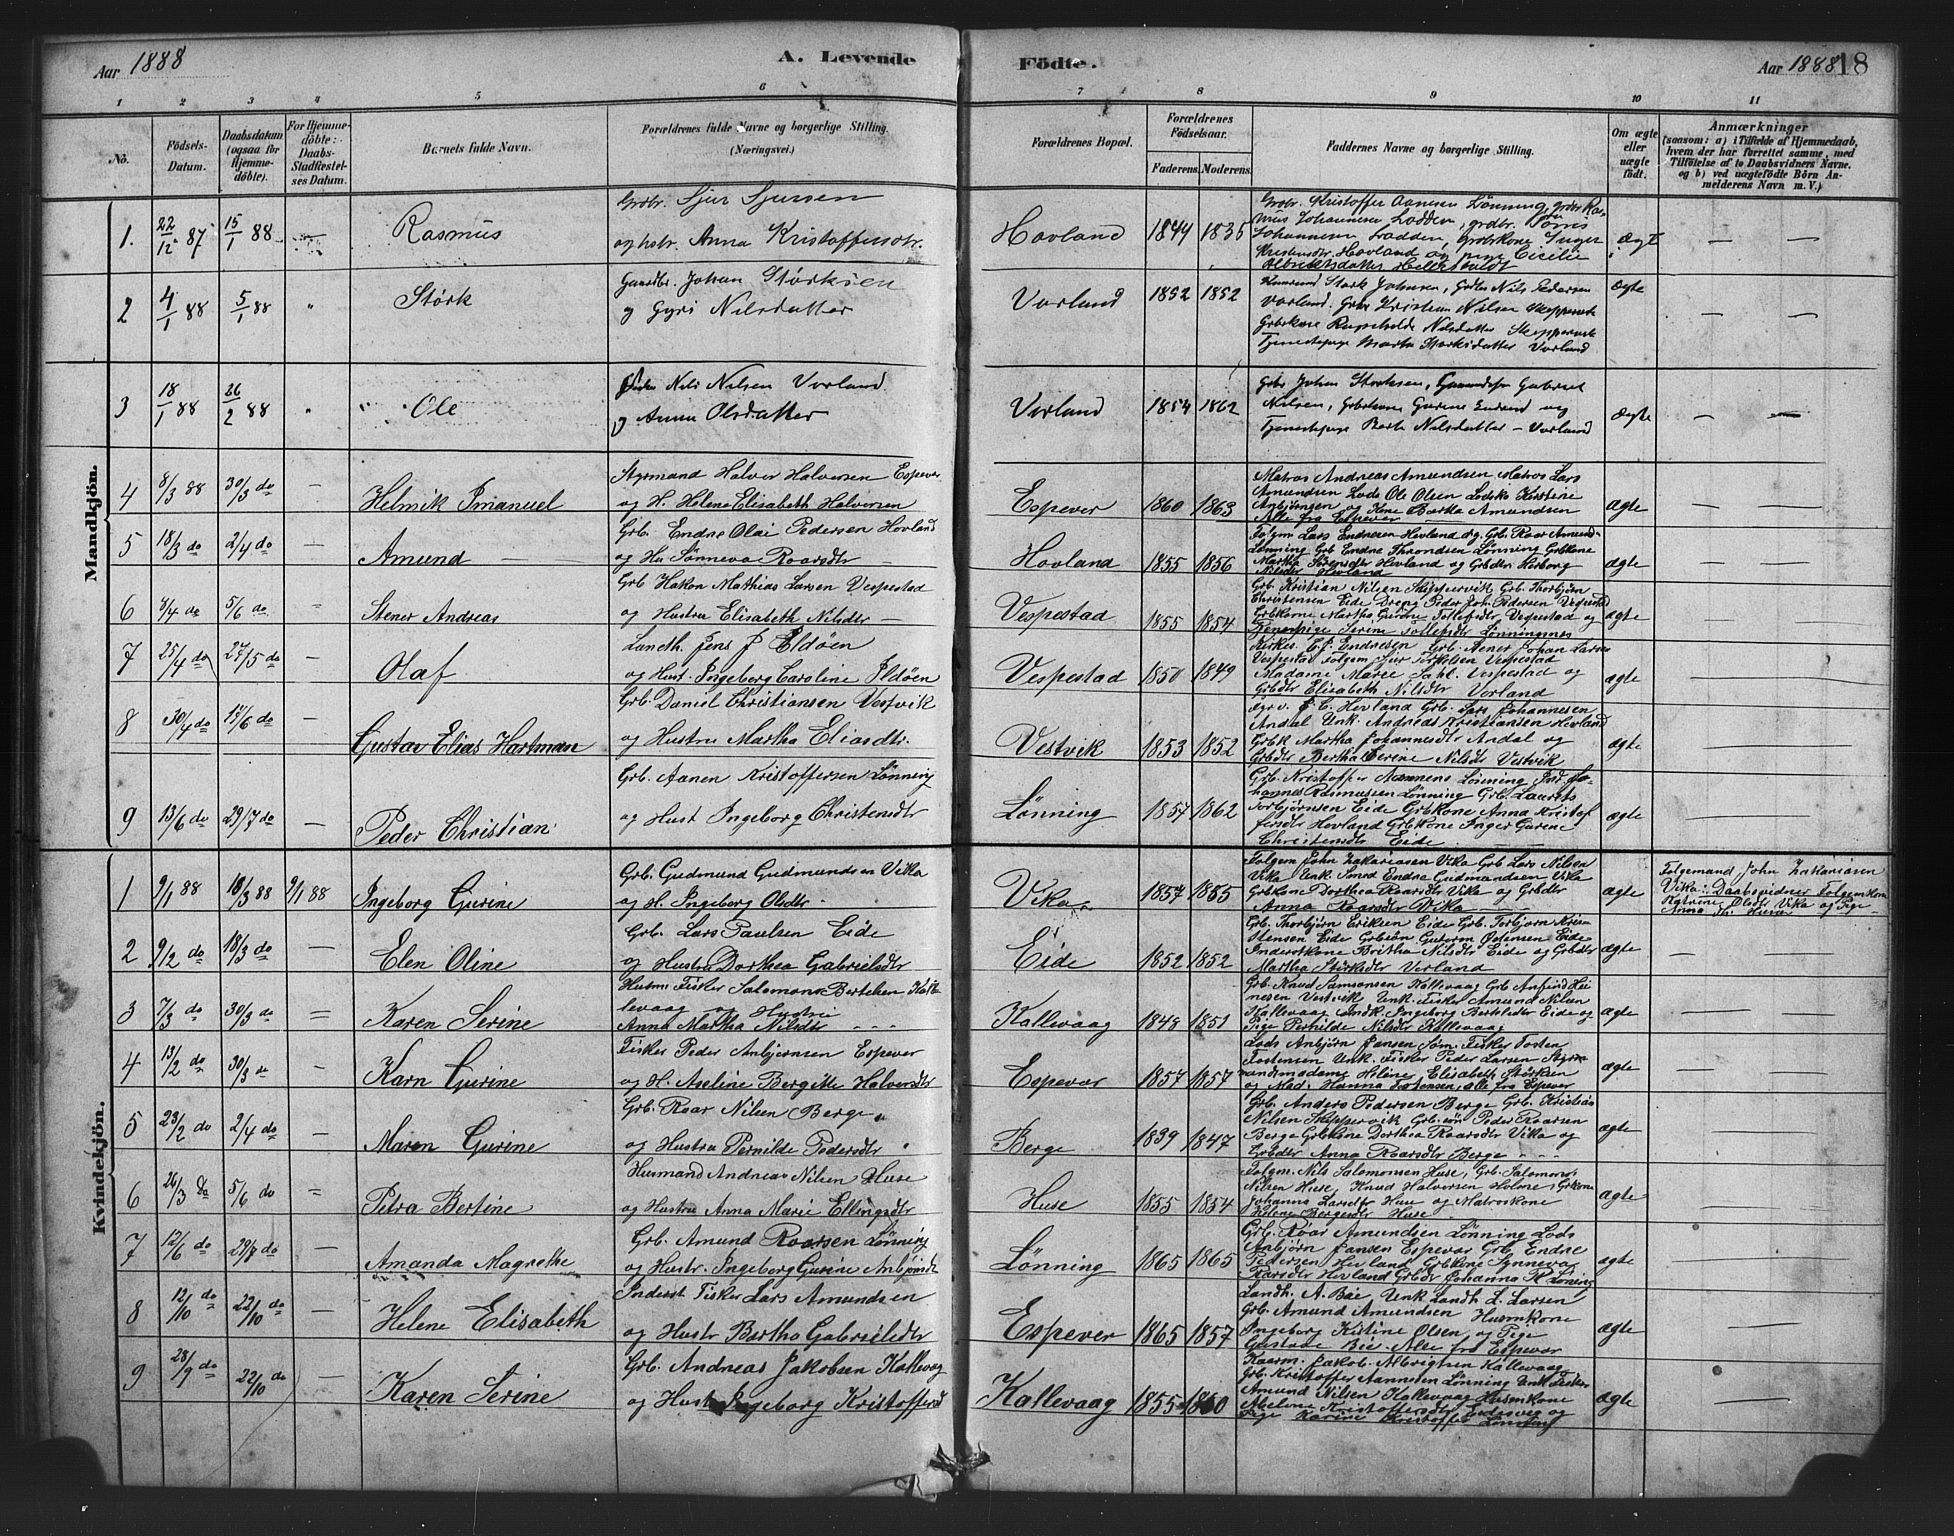 Aar 1888
A. Levende
Födte.
Aar 1888
18
1 2 3 4 5 6 7 8 9 10 11
No.
Födsels-
Datum.
Daabsdatum
(ogsaa för
Hjemme-
döbte).
For Hjemme-
döbte:
Daabs-
Stadfæstel-
ses Datum.
Barnets fulde Navn.
Forældrenes fulde Navne og borgerlige Stilling.
(Næringsvei.)
Forældrenes Bopæl.
Forældrenes
Födselsaar.
Faderens. Moderens.
Faddernes Navne og borgerlige Stilling.
Om ægte
eller
uægte
födt.
Anmærkninger
(saasom: a) i Tilfælde af Hjemmedaab,
hvem der har forrettet samme, med
Tilföielse af to Daabsvidners Navne,
og b) ved uægtefödte Börn An-
melderens Navn m. V.)
Mandkjön.
1. 22/12 87 15/1 88 — Rasmus
Grdbr. Sjur Sjursen
og hstr. Anna Kristoffersdtr.
Hovland 1844 1835
Grdbr. Kristoffer Aanesen Lönning, grdbr. Ras-
mus Johannesen Lodden, grdbr. Törris
Johannesen Lodden, grdbrkone Inger
Hovland og pige Cecilie
ægte — —
2 4/1 88 5/1 88 " Störk
Gaardbr. Johan Störksen
og Gyri Nilsdatter
Vorland 1852 1852
Störk Johnsen, Nils Pedersen
Vorland. Kristian Nilsen Skeppervik
Grbkone Nilsdatter Skeppervik
Tjenestepige Marta Storksdatter Vorland
ægte — —
3 18/1 88 26/2 88 " Ole
Nils Nilsen Vorland
og Anna Olsdatter
Vorland 1854 1862
Grbr Johan Storksen, Gabriel
Nilsen, Grbkone Gurine og
Tjenestepige Berte Nilsdatter - Vorland
ægte — —
4 8/3 88 30/3 do — Helmik Imanuel
Styrmand Halver Halversen Espever
og H. Helene Elisabeth Halversen
Espever 1860 1863
Matros Andreas Amundsen Matros Lars
Amundsen Lods Ole Olsen Lodsko Kirstine
Anbjörnsen og Kone Bertha Amundsen
Alle fra Espever
ægte —
5 18/3 do 2/4 do — Amund
Grb. Endre Olai Pedersen Hovland
og Hu Sönneva Roarsdtr
Hovland 1855 1856
Folgm Lars Endresen Hovland og Grb. Roar Amund-
Lönning Grb Endre Throndsen Lönning Grbkone
Martha Sörensdtr Hovland og Grbdtr Herborg
Nilsdtr Hovland
ægte —
6 8/4 do 5/6 do " Stener Andreas
Grb Hakon Mathias Larsen Vespestad
og Hustru Elisabeth Nilsdtr —
Vespestad 1855 1854
Grb. Kristian Nilsen Skippervik Grb. Thorbjörn
Christensen Eide Dreng Peder Joh. Pedersen Vespestad
Grbkone Martha Gurine Tollefsdtr Vespestad og
Tjenerpige Serine Tollefsdtr Lönningnes
ægte —
7 25/4 do 27/5 do — Olaf
Landh. Jens J Eldöen
og Hust. Ingeborg Caroline Ildöen
Vespestad 1850 1849
Kirkes. E. J. Endresen Grb. Aener Johan Larsen
Vespestad Folgem. Sjur Torkelsen Vespestad
Madame Marie Dahl. Vespestad og
Grbdtr Elisabeth Nilsdtr Vorland
ægte —
8 30/4 do 17/6 do — Gustav Elias Hartman
Grb. Daniel Christiansen Vestvik
og Hustru Martha Eliasdtr.
Vestvik 1853 1852
J. C. Hovland Grb. Lars Johannesen
Andal Unk. Andreas Kristiansen Hovland
Grbk Martha Johannesdtr Ardal og
Grbdtr Bertha Serine Nilsdtr Vestvik
ægte —
9 13/6 do 29/7 do — Peder Christian
Grb. Aanen Kristoffersen Lönning
og Hust Ingeborg Christensdtr
Lönning 1857 1862
Grb. Kristoffer Aannens Lönning Jo-
hannes Rasmussen Lönning Grb. Laurits
Torbjörnsen Eide Grbkone Anna Kristof
fersdtr Hovland Grbkone Inger Gurine
Christensdtr Eide
ægte —
Kvindekjön.
1 9/1 88 18/3 88 9/1 88 Ingeborg Gurine
Grb. Gudmund Gudmundsen Vika
og H. Ingeborg Olsdtr
Vika 1857 1855
Folgem John Zakariasen Vika Grb Lars Nilsen
Vika Unk. Smed Endre Gudmundsen Vika
Grbkone Dorthea Roarsdtr Vika og Grbdtr
Anna Roarsdtr Vika
ægte
Folgemand John Zakariasen
Vika: Daabsvidner Folgem.kone
Katrine Olsdtr Vika og Pige
Anna
2 9/2 do 18/3 do — Elen Oline
Grb. Lars Paulsen Eide
og Hustru Dorthea Gabrielsdtr
Eide 1852 1852
Grb. Thorbjörn Eriksen Eide Grb. Torbjörn Kris-
stensen Eide Grbsön Guttorm Östensen Eide
Inderstkone Britha Nilsdtr Eide og Grbdtr
Martha Störksdtr Vorland
ægte —
3 7/3 do 30/3 do = Karen Serine
Husm: Fisker Salomon Bertelsen Kal-
levaag og Hustru
Anna Martha Nilsdtr
Kallevaag 1848 1851
Grb. Knud Samsonsen Kallevaag Grb Anfind Hei-
nesen Vestvik Unk. Fisker Amund Nilsen
Kallevaag Ingeborg Bertelsdtr Eide og
Pige Pernilde Nilsdtr Kallevaag
ægte —
4 13/2 do 30/3 do — Karn Gurine
Fisker Peder Anbjörnsen Espever
og H. Aseline Bergitte Halversdtr
Espever 1857 1857
Lods Anbjörn Jansen Söm. Fisker Tosten
Tostensen Unk. Fisker Peder Larsen Styrm
andsmadame Helene Elisabeth Störksen
og Mad. Hanna Tostensen, alle fra Espever
ægte —
5 23/2 do 2/4 do — Maren Gurine
Grb. Roar Nilsen Berge
og Hustru Pernilde Pedersdtr
Berge 1839 1847
Grb. Anders Pedersen Berge Grb. Kristian
Nilsen Skippervik Grb.sön Peder Roarsen
Berge Grbkone Dorthea Roarsdtr Vika og
Grbdtr Anna Roarsdtr Berge
ægte —
6 26/3 do 5/6 do = Petra Bertine
Husmand Andreas Nilsen Huse
og Hustru Anna Marie Ellingsdtr
Huse 1855 1854
Folgm. Nils Salomonsen Huse, Grb. Salomon
Nilsen Huse, Knud Halversen Grkone
Johanna Larsdtr Huse og Matroskone
Helene Bergesdtr Huse
ægte —
7 12/6 do 29/7 do — Amanda Magrethe
Grb. Amund Roarsen Lönning
og Hustr. Ingeborg Gurine Anbjönsdt
Lönning 1865 1865
Grb. Roar Amundsen Lönning Lods
Anbjörn Jansen Espevar Grb Endre
Pedersen Hovland Grbkone Synneva
Roarsdtr Hovland Grbdtr Johanna R Löning
ægte —
8 12/10 do 22/10 do — Helene Elisabeth
Inderst Fisker Lars Amundsen
og Hustr Bertha Gabrielsdtr
Espever 1865 1857
Landh. A. Bae Unk Landh L. Larsen
Grb. Amund Amundsen Husmkone
Ingeborg Kistine Olsen og Pige
Gustave Bie Alle fra Espever
ægte —
9 28/9 do 22/10 do — Karen Serine
Grb. Andreas Jakobsen Kallevaag
og Hustr Ingeborg Kristoffersd
Kallevaag 1855 1860
Kaarm. Jakob Albrigtsen Kallevaag
Grb. Kristoffer Aannesen Lönning Unk Fisker
Amund Nilsen Kallevaag Husmkone
Abelone Kristoffersdtr og
Pige Karine Kristoffer Lönning
ægte —